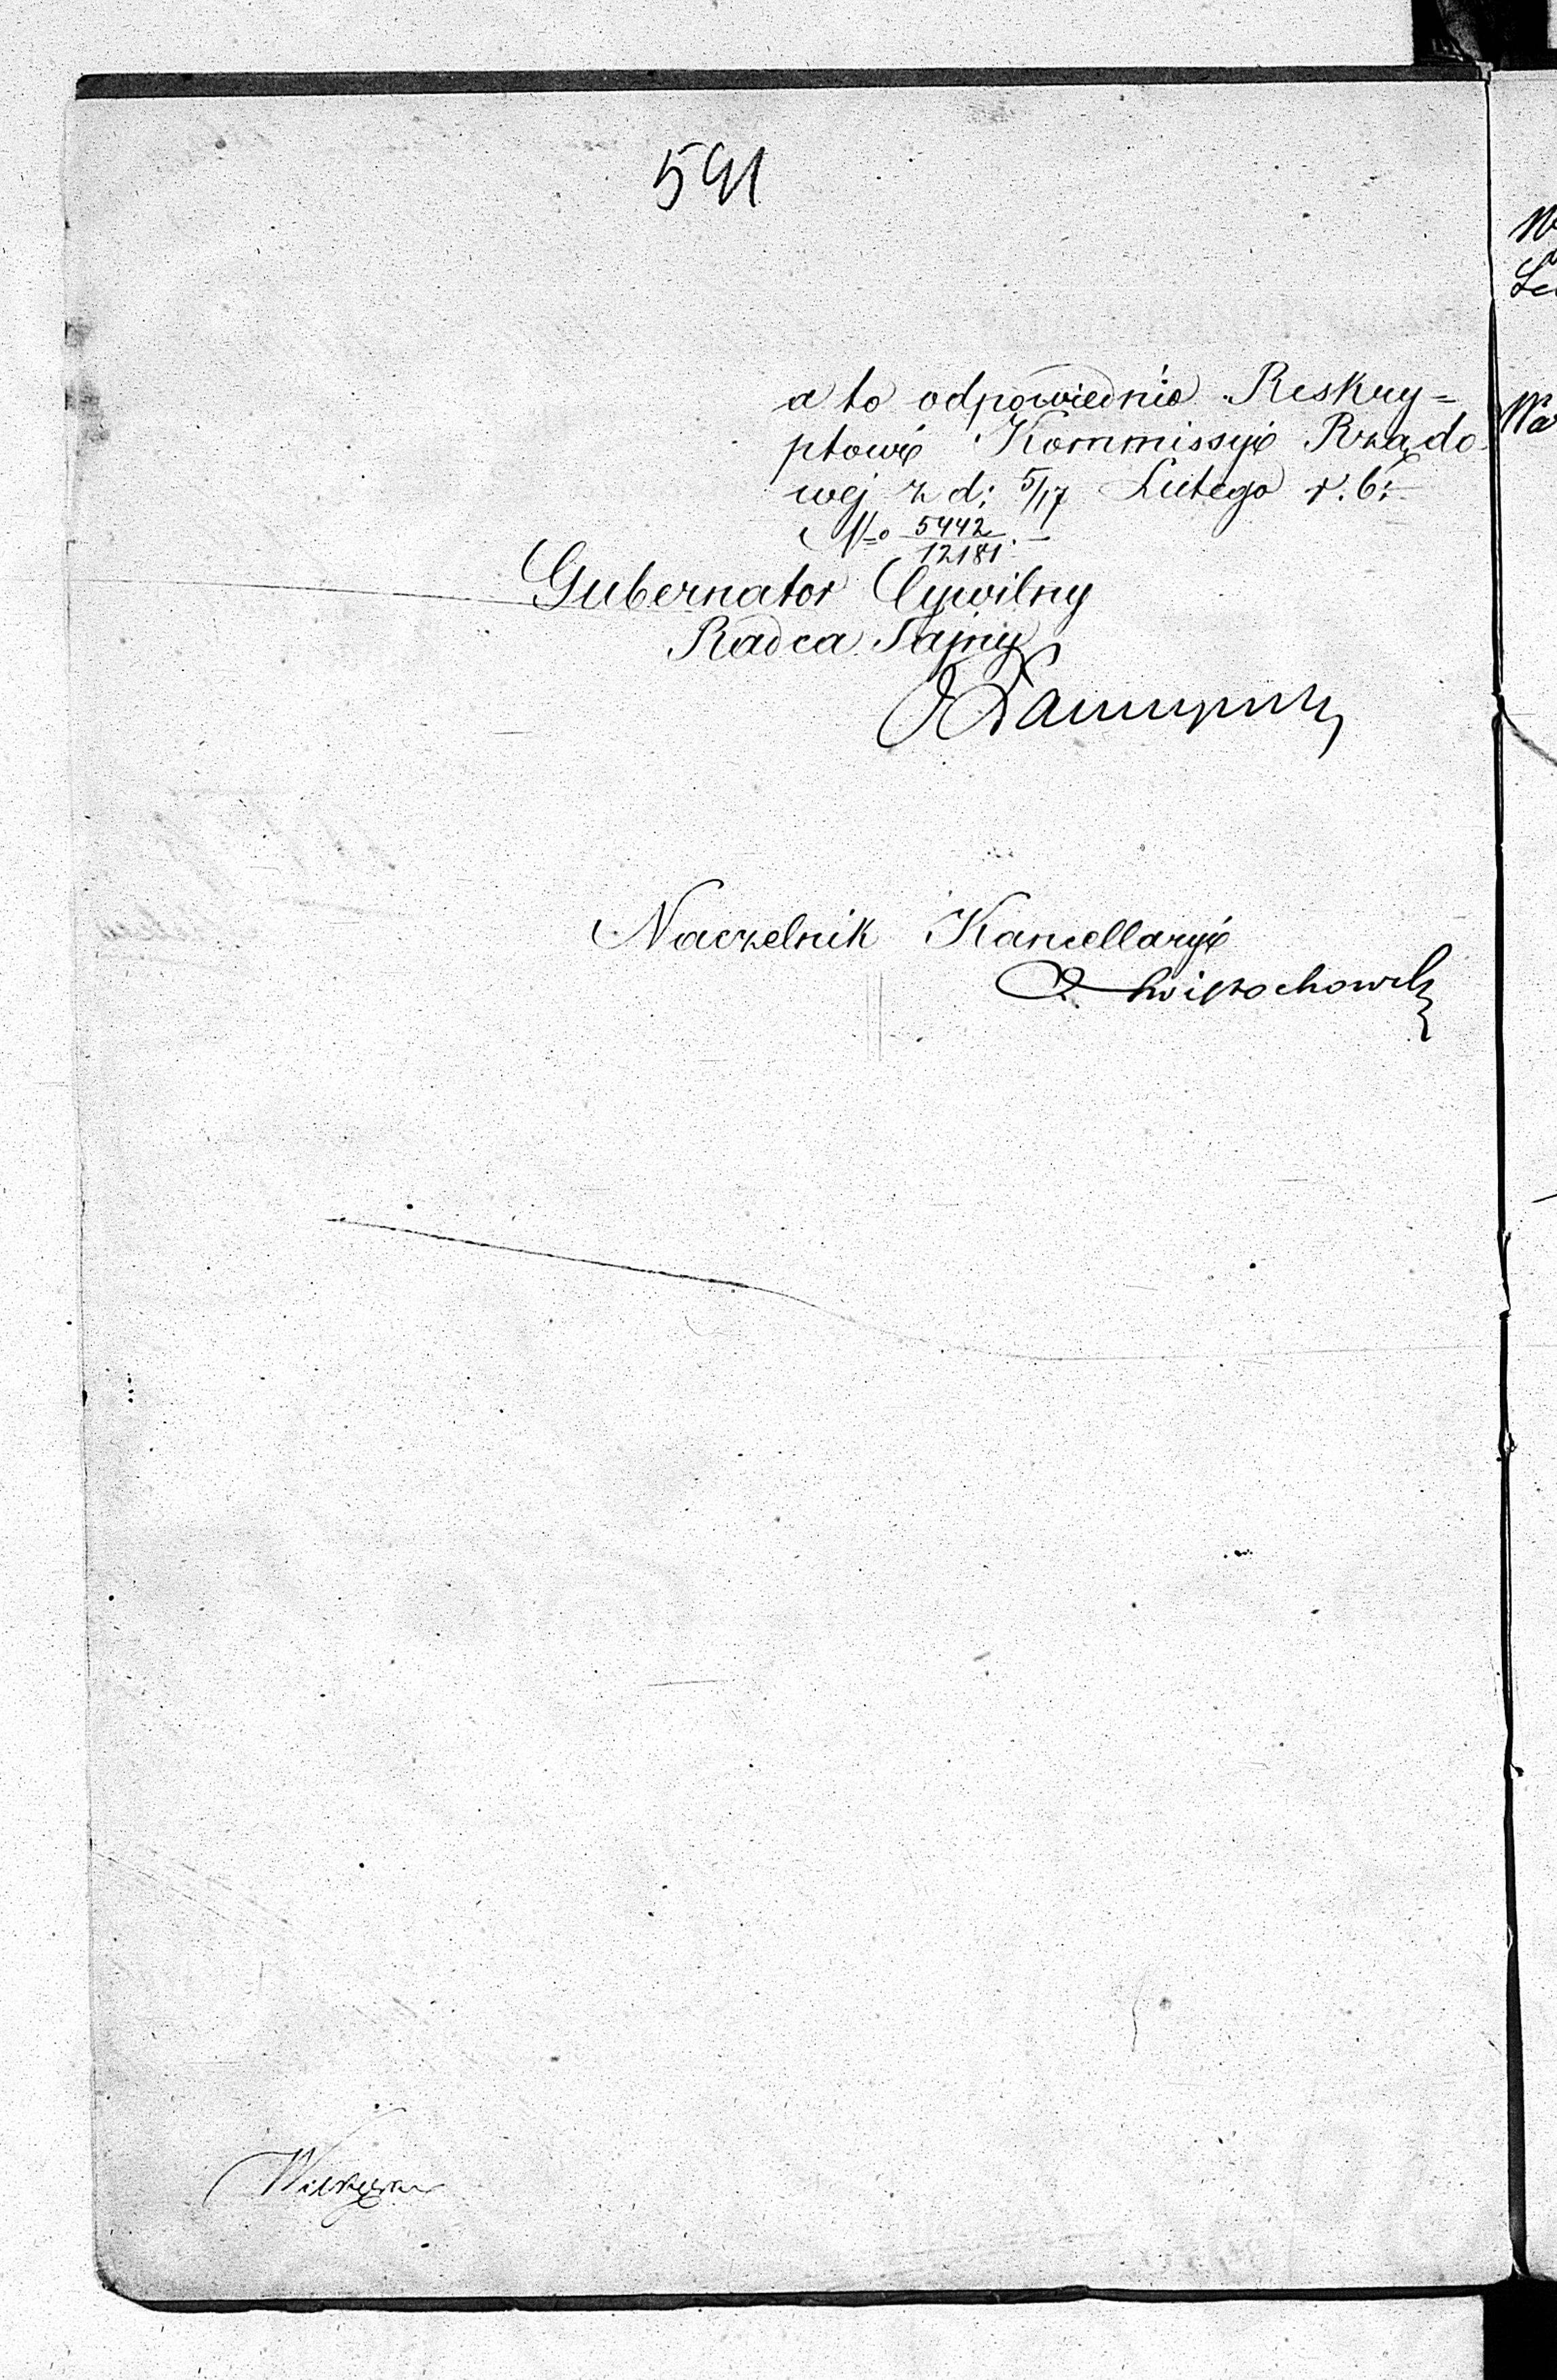 591
a to odpowiednio Reskry=
ptowi Kommissyi Rządo
wej z d: 5/17 Lutego r. b:
No 5442/12181.
Gubernator Cywilny
Radca Tajny
Naczelnik Kancellaryi